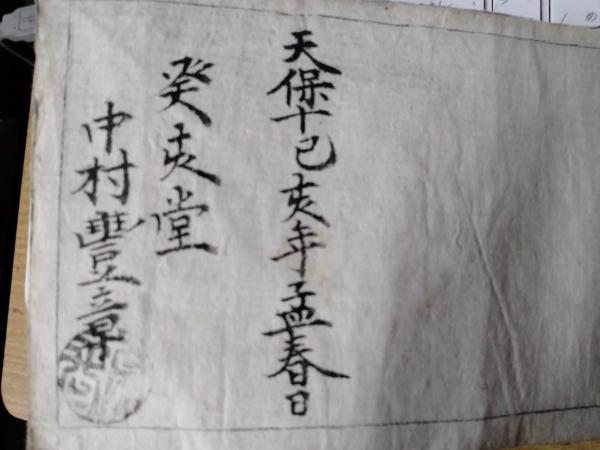 天保十己亥年孟春日
癸亥堂
中村豊章